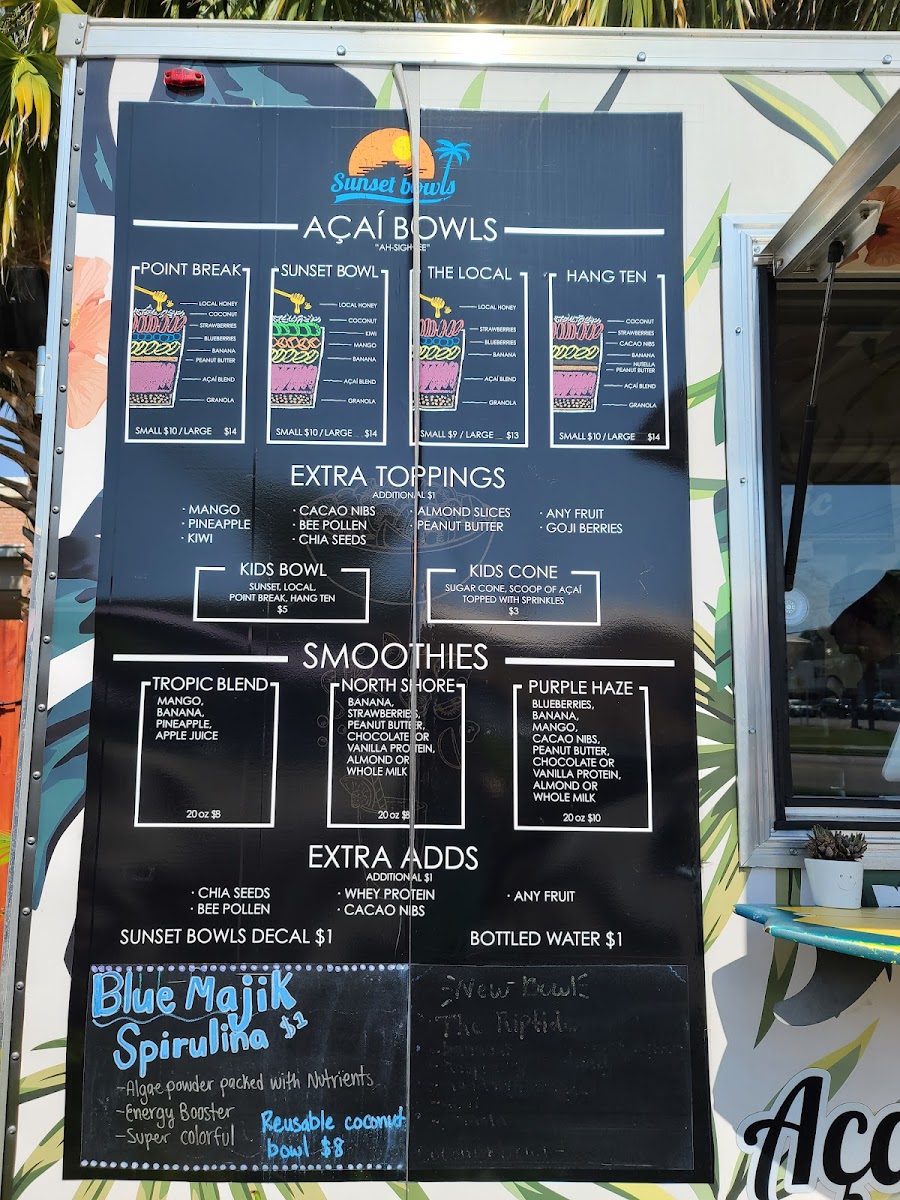 Sunset bowls
AÇAÍ BOWLS
"AH-SIGH-EE"
POINT BREAK
LOCAL HONEY
COCONUT
STRAWBERRIES
BLUEBERRIES
BANANA
PEANUT BUTTER
AÇAÍ BLEND
GRANOLA
SMALL $10 / LARGE $14
SUNSET BOWL
LOCAL HONEY
COCONUT
KIWI
MANGO
BANANA
AÇAÍ BLEND
GRANOLA
SMALL $10 / LARGE $14
THE LOCAL
LOCAL HONEY
STRAWBERRIES
BLUEBERRIES
BANANA
AÇAÍ BLEND
GRANOLA
SMALL $9 / LARGE $13
HANG TEN
COCONUT
STRAWBERRIES
CACAO NIBS
BANANA
NUTELLA
PEANUT BUTTER
AÇAÍ BLEND
GRANOLA
SMALL $10 / LARGE $14
EXTRA TOPPINGS
ADDITIONAL $1
· MANGO
· PINEAPPLE
· KIWI
· CACAO NIBS
· BEE POLLEN
· CHIA SEEDS
· ALMOND SLICES
· PEANUT BUTTER
· ANY FRUIT
· GOJI BERRIES
KIDS BOWL
SUNSET, LOCAL,
POINT BREAK, HANG TEN
$5
KIDS CONE
SUGAR CONE, SCOOP OF AÇAÍ
TOPPED WITH SPRINKLES
$3
SMOOTHIES
TROPIC BLEND
MANGO,
BANANA,
PINEAPPLE,
APPLE JUICE
20 oz $8
NORTH SHORE
BANANA,
STRAWBERRIES,
PEANUT BUTTER,
CHOCOLATE OR
VANILLA PROTEIN,
ALMOND OR
WHOLE MILK
20 oz $8
PURPLE HAZE
BLUEBERRIES,
BANANA,
MANGO,
CACAO NIBS,
PEANUT BUTTER,
CHOCOLATE OR
VANILLA PROTEIN,
ALMOND OR
WHOLE MILK
20 oz $10
EXTRA ADDS
ADDITIONAL $1
· CHIA SEEDS
· BEE POLLEN
· WHEY PROTEIN
· CACAO NIBS
· ANY FRUIT
SUNSET BOWLS DECAL $1
BOTTLED WATER $1
Blue Majik
Spirulina $1
-Algae powder packed with Nutrients
-Energy Booster
-Super colorful
Reusable coconut
bowl $8
New Bowl
The Riptide
Aça